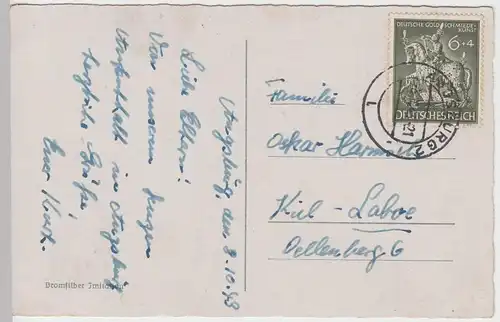 Augsburg, den 8.10.43
Liebe Eltern!
Von unserem kurzen
Aufenthalt in Augsburg
herzliche Grüße!
Euer Kurt.
Bromsilber Imitation
DEUTSCHE GOLDSCHMIEDE-
KUNST
6+4
DEUTSCHES REICH
BURG 2
Familie
Oskar
Kiel-Laboe
Dellenberg 6